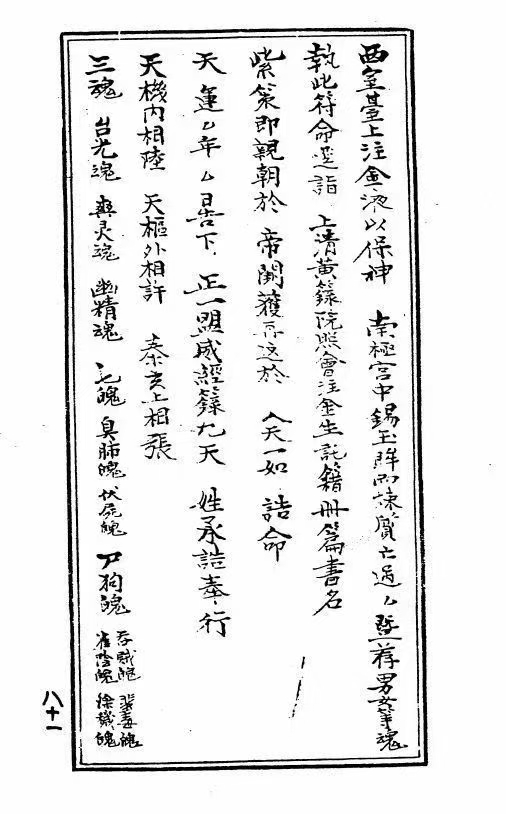 西室臺上注金液以保神 南極宮中錫玉眸而諫質亡過厶暨荐男女等魂
執此符命逕詣 上清黃籙院照會注金生託籍册篇書名
紫策即親朝於 帝闕獲再這於 人天一如 誥命
天運厶年厶日告下 正一盟威經籙九天 姓承誥奉行
天機內相陸 天樞外相許 泰玄上相張
三魂 台光魂 爽灵魂 幽精魂 七魄 臭肺魄 伏屍魄 尸狗魄 吞賊魄 雀陰魄 非毒魄 除穢魄
八十一